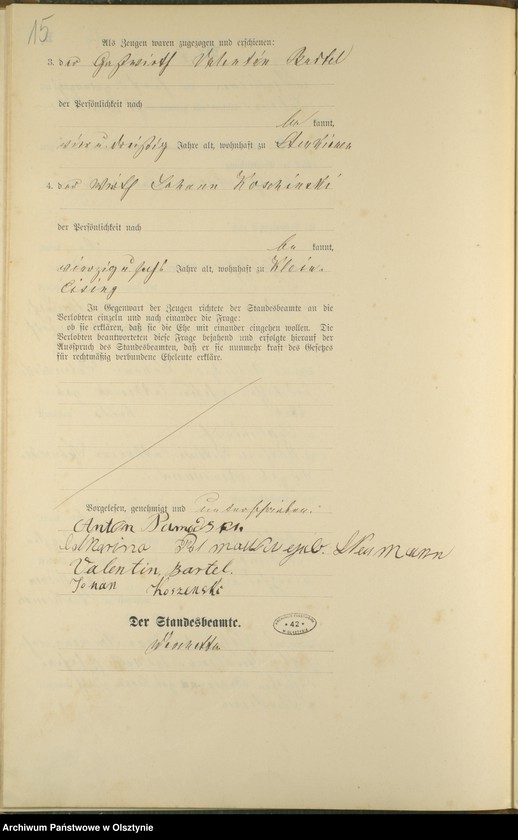 15
Als Zeugen waren zugezogen und erschienen:
3. der Gastwirth Valentin Bartel
der Persönlichkeit nach
be kannt,
vier u. dreißig Jahre alt, wohnhaft zu
4. der Wirth Johann Koschinski
der Persönlichkeit nach
be kannt,
vierzig u sechs Jahre alt, wohnhaft zu Klein-
In Gegenwart der Zeugen richtete der Standesbeamte an die
Verlobten einzeln und nach einander die Frage:
ob sie erklären, daß sie die Ehe mit einander eingehen wollen. Die
Verlobten beantworteten diese Frage bejahend und erfolgte hierauf der
Ausspruch des Standesbeamten, daß er sie nunmehr kraft des Gesetzes
für rechtmäßig verbundene Eheleute erkläre.
Vorgelesen, genehmigt und unterschrieben:
Anton
geb.
Valentin Bartel.
Johan Koszinski
Der Standesbeamte.
42
Archiwum Państwowe w Olsztynie